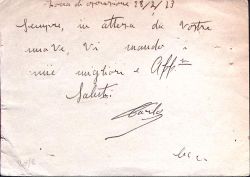 Zona di operazione 28/2/23
Sempre, in attesa da Vostre
nuove, Vi mando i
miei migliori e Aff.mi
Saluti
Carlo